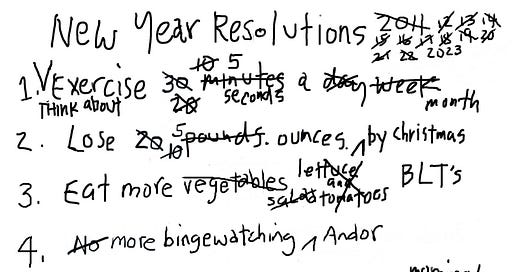 New Year Resolutions 2011 12 13 14
15 16 17 18 19 20
21 22 2023
10 5
1. Exercise 30 minutes a day week
Think about 20 seconds month
2. Lose 20 5 pounds. ounces. by christmas
10
3. Eat more vegetables lettuce and tomatoes BLT's
salad
4. No more bingewatching Andor